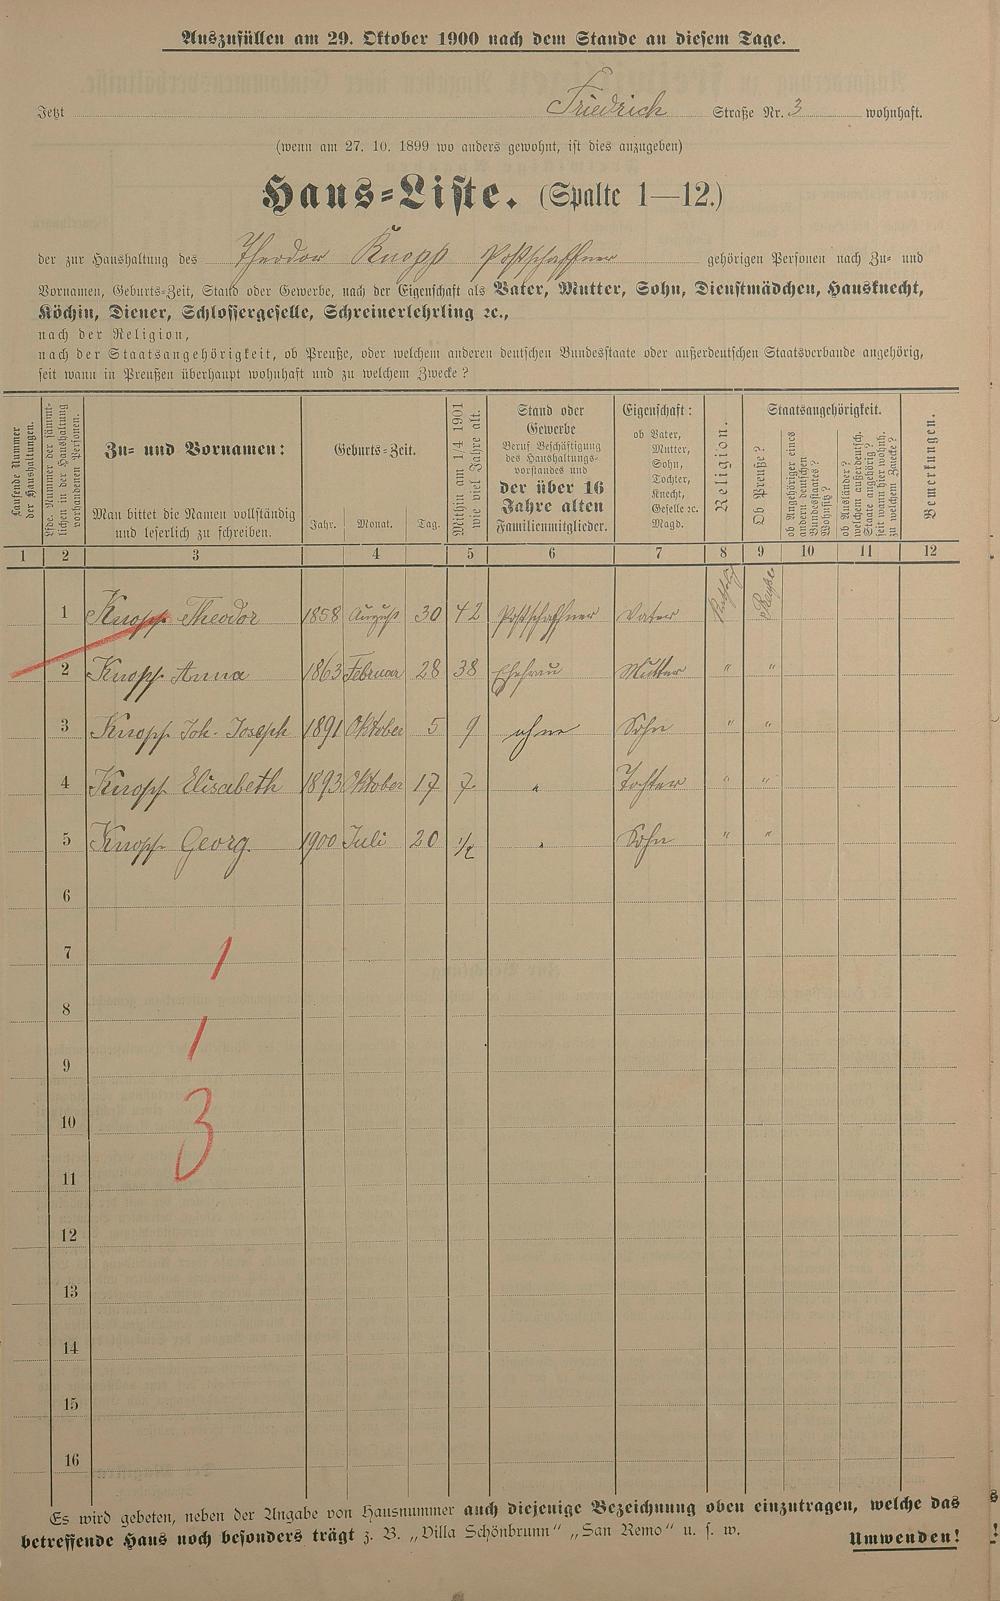 Auszufüllen am 29. Oktober 1900 nach dem Stande an diesem Tage.
Jetzt Friedrich Straße Nr. 3 wohnhaft.
(wenn am 27. 10. 1899 wo anders gewohnt, ist dies anzugeben)
Haus-Liste. (Spalte 1—12.)
der zur Haushaltung des Theodor Knopp Postschaffner gehörigen Personen nach Zu- und
Vornamen, Geburts-Zeit, Stand oder Gewerbe, nach der Eigenschaft als Vater, Mutter, Sohn, Dienstmädchen, Hausknecht,
Köchin, Diener, Schlossergeselle, Schreinerlehrling ꝛc.,
nach der Religion,
nach der Staatsangehörigkeit, ob Preuße, oder welchem anderen deutschen Bundesstaate oder außerdeutschen Staatsverbande angehörig,
seit wann in Preußen überhaupt wohnhaft und zu welchem Zwecke?
Laufende Nummer
der Haushaltungen.
Lfde. Nummer der sämmt-
lichen in der Haushaltung
vorhandenen Personen.
Zu- und Vornamen:
Man bittet die Namen vollständig
und leserlich zu schreiben.
Geburts-Zeit.
Jahr. Monat. Tag.
Mithin am 1/4 1901
wie viel Jahre alt.
Stand oder
Gewerbe
Beruf Beschäftigung
des Haushaltungs-
vorstandes und
der über 16
Jahre alten
Familienmitglieder.
Eigenschaft:
ob Vater,
Mutter,
Sohn,
Tochter,
Knecht,
Geselle ꝛc.
Magd.
Religion.
Staatsangehörigkeit.
Ob Preuße?
ob Angehöriger eines
andern deutschen
Bundesstaates?
Wohnsitz?
ob Ausländer?
welchem außerdeutsch.
Staate angehörig?
seit wann hier wohnh.
zu welchem Zwecke?
Bemerkungen.
1 2 3 4 5 6 7 8 9 10 11 12
1 Knopp Theodor 1858 August 30 42 Postschaffner Vater Katholisch Preuße
2 Knopp Anna 1863 Februar 28 38 Ehefrau Mutter " "
3 Knopp Joh. Joseph 1891 Oktober 5 9 ohne Sohn " "
4 Knopp Elisabeth 1893 Oktober 17 7 " Tochter " "
5 Knopp Georg. 1900 Juli 20 1/2 " Sohn " "
6
7
1
8
1
9
10
3
11
12
13
14
15
16
Es wird gebeten, neben der Angabe von Hausnummer auch diejenige Bezeichnung oben einzutragen, welche das
betreffende Haus noch besonders trägt z. B. „Villa Schönbrunn" „San Remo" u. s. w.
Umwenden!